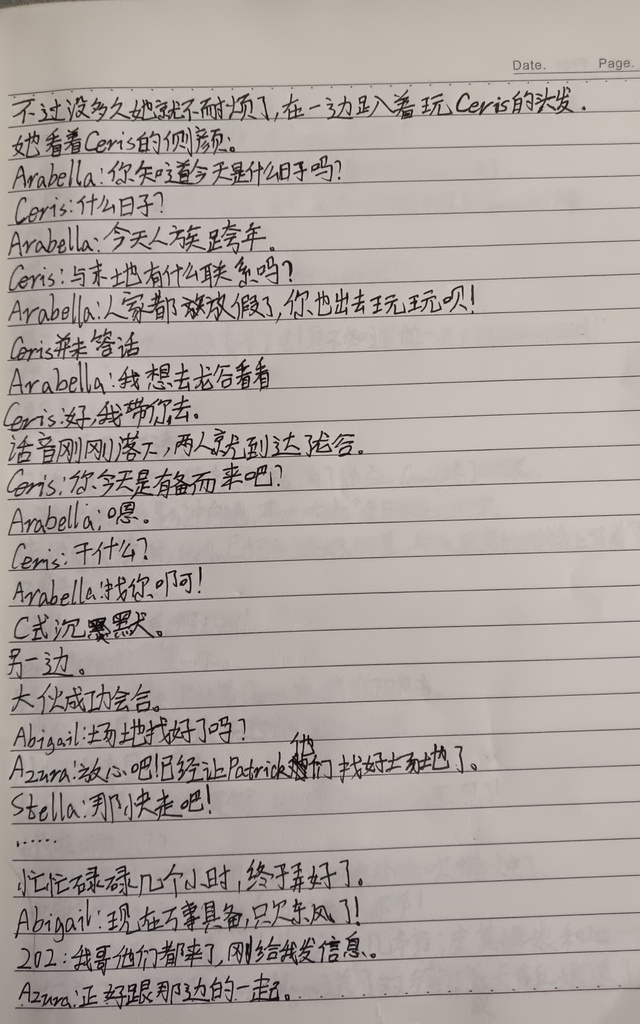 Date. Page.
不过没多久她就不耐烦了,在一边趴着玩Ceris的头发.
她看着Ceris的侧颜。
Arabella:你知道今天是什么日子吗?
Ceris:什么日子?
Arabella:今天人族跨年。
Ceris:与本地有什么联系吗?
Arabella:人家都放假了,你也出去玩玩呗!
Ceris并未答话
Arabella:我想去龙谷看看
Ceris:好,我带你去。
话音刚刚落下,两人就到达了龙谷。
Ceris:你今天是有备而来吧?
Arabella:嗯。
Ceris:干什么?
Arabella:找你啊!
C式沉默。
另一边。
大伙成功会合。
Abigail:场地找好了吗?
Azura:放心吧!已经让Patrick他们找好场地了。
Stella:那快走吧!
......
忙忙碌碌几个小时,终于弄好了。
Abigail:现在万事具备,只欠东风了!
202:我哥他们都来了,刚给我发信息。
Azura:正好跟那边的一起。